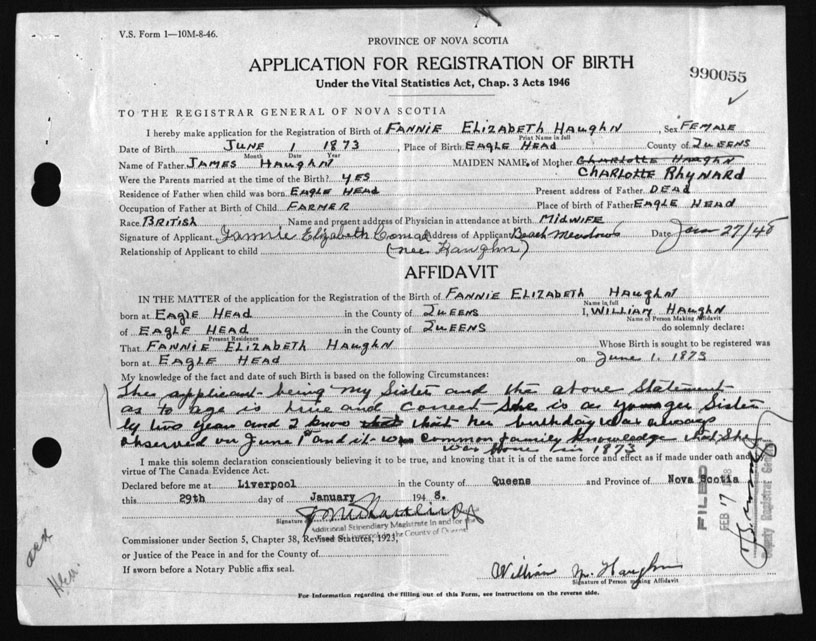 V.S. Form 1—10M-8-46.
PROVINCE OF NOVA SCOTIA
APPLICATION FOR REGISTRATION OF BIRTH
Under the Vital Statistics Act, Chap. 3 Acts 1946
990055
TO THE REGISTRAR GENERAL OF NOVA SCOTIA
I hereby make application for the Registration of Birth of FANNIE ELIZABETH HAUGHN, Sex FEMALE
Print Name in full
Date of Birth JUNE 1 1873, Place of Birth EAGLE HEAD County of QUEENS
Month Date Year
Name of Father JAMES HAUGHN MAIDEN NAME of Mother CHARLOTTE HAUGHN
CHARLOTTE RHYNARD
Were the Parents married at the time of the Birth? YES
Residence of Father when child was born EAGLE HEAD Present address of Father DEAD
Occupation of Father at Birth of Child FARMER Place of birth of Father EAGLE HEAD
Race BRITISH Name and present address of Physician in attendance at birth MIDWIFE
Signature of Applicant Fannie Elizabeth Conrad Address of Applicant Beach Meadows Date Jan 27/48
Relationship of Applicant to child (nee Haughn)
AFFIDAVIT
IN THE MATTER of the application for the Registration of the Birth of FANNIE ELIZABETH HAUGHN
Name in full
born at EAGLE HEAD in the County of QUEENS I, WILLIAM HAUGHN
Name of Person Making Affidavit
of EAGLE HEAD in the County of QUEENS do solemnly declare:
Present Residence
That FANNIE ELIZABETH HAUGHN Whose Birth is sought to be registered was
born at EAGLE HEAD on June 1, 1873
My knowledge of the fact and date of such Birth is based on the following Circumstances:
This applicant being my Sister and the above Statement
as to age is true and correct She is a younger Sister
by two years and I know that that her birthday was always
observed on June 1 and it was common family knowledge that she
was born in 1873
I make this solemn declaration conscientiously believing it to be true, and knowing that it is of the same force and effect as if made under oath and
virtue of The Canada Evidence Act.
Declared before me at Liverpool in the County of Queens and Province of Nova Scotia
this 29th day of January 1948.
Signature
Additional Stipendiary Magistrate in and for the
Commissioner under Section 5, Chapter 38, Revised Statutes, 1923,
or Justice of the Peace in and for the County of
If sworn before a Notary Public affix seal.
William M. Haughn
Signature of Person making Affidavit
For Information regarding the filling out of this Form, see instructions on the reverse side.
FILED
FEB 17 1948
Deputy Registrar General